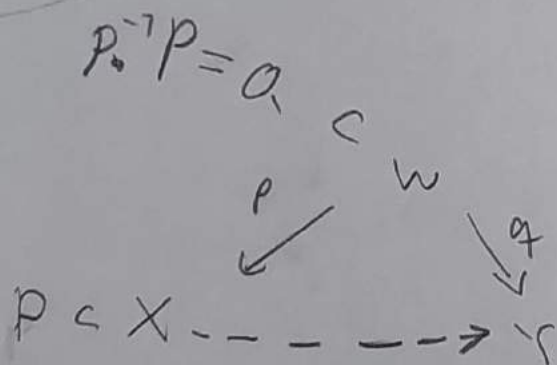 P.⁻¹P = Q
⊂ W
p q
P ⊂ X - - - - → Y